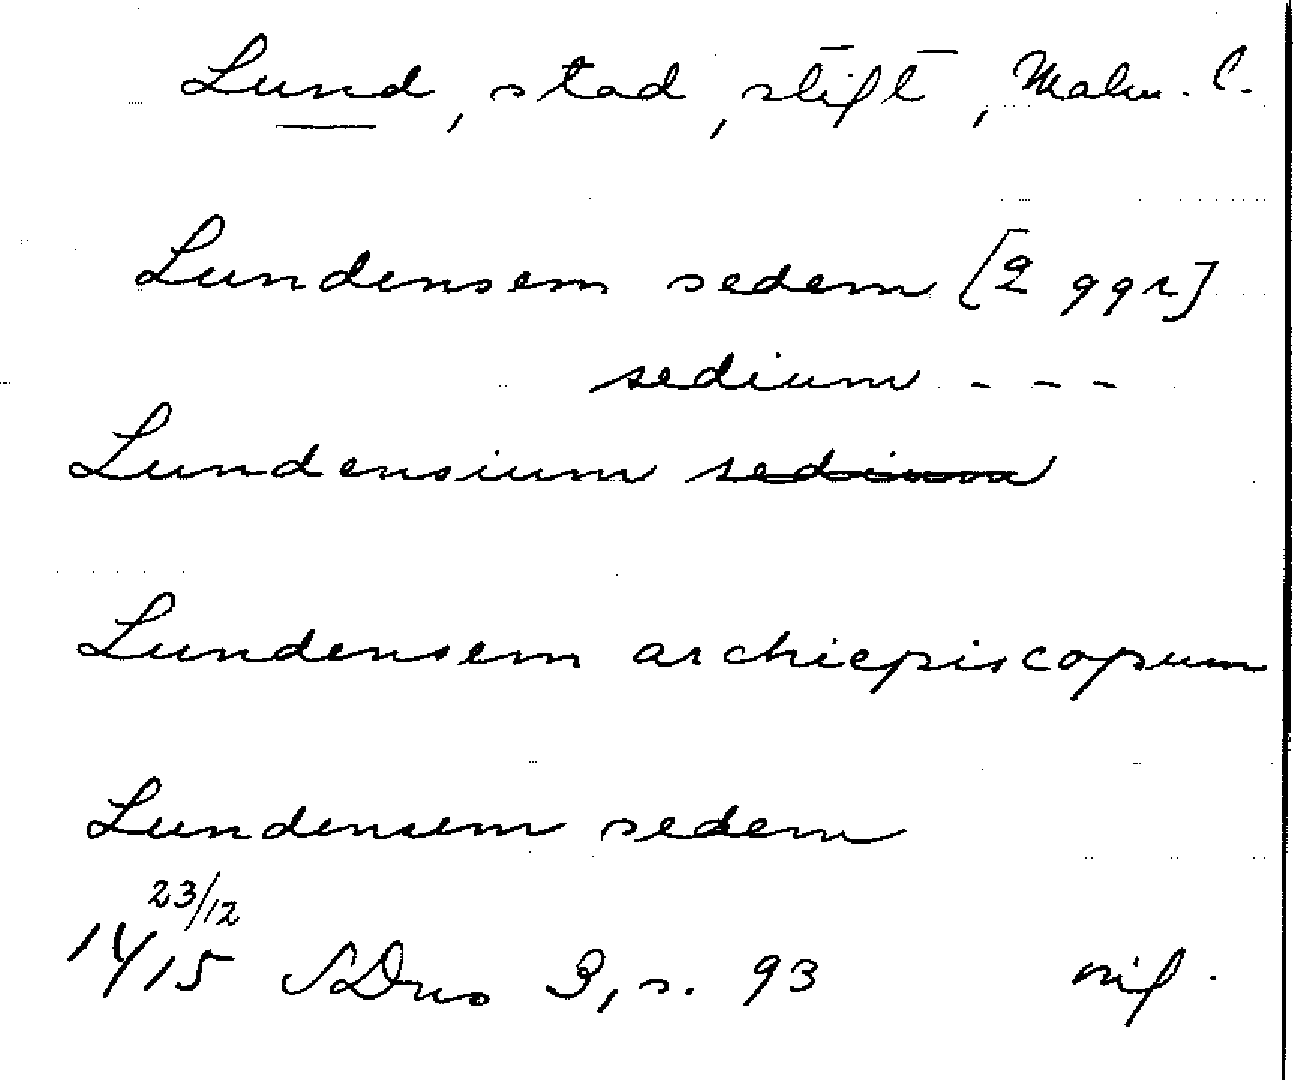 Lund, stad, stift, Malm. l.
Lundensem sedem [2 ggr]
sedium - - -
Lundensium sedium
Lundensem archiepiscopum
Lundensem sedem
23/12
1415 SDns 3, s. 93 mf.